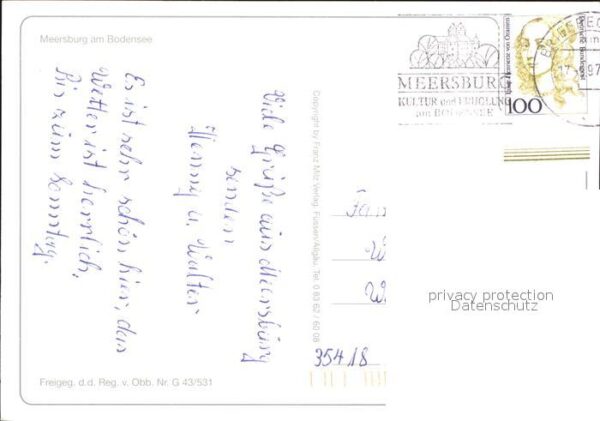 Meersburg am Bodensee
Viele Grüße aus Meersburg
senden
Henny u. Walter
Es ist sehr schön hier, das
Wetter ist herrlich,
Bis zum Sonntag.
Copyright by Franz Milz Verlag, Füssen/Allgäu, Tel. 0 83 62 / 60 08
MEERSBURG
KULTUR und ERHOLUNG
am BODENSEE
Deutsche Bundespost
100
97
Fam
W
W
35418
privacy protection
Datenschutz
Freigeg. d.d. Reg. v. Obb. Nr. G 43/531